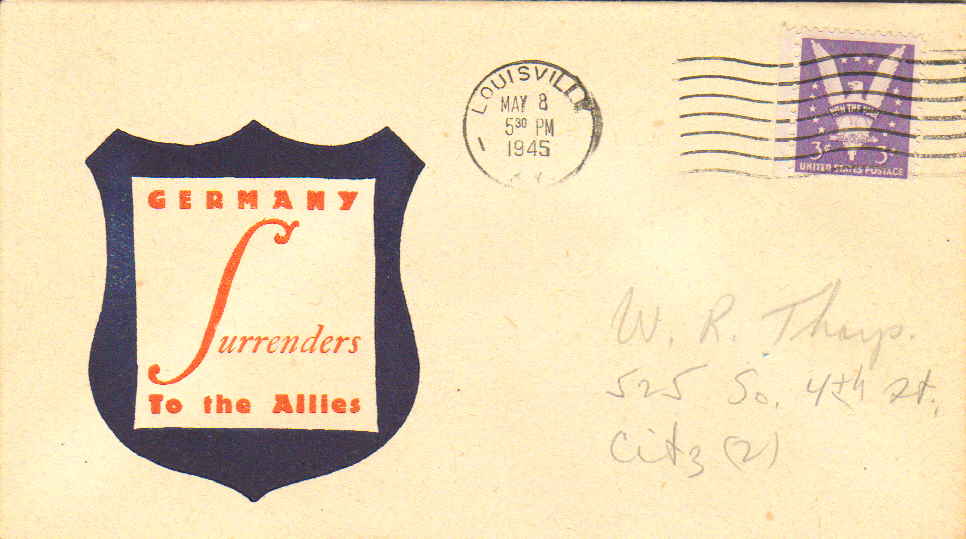 LOUISVILL
MAY 8
5 30 PM
1945
WIN THE WAR
3¢ 3¢
UNITED STATES POSTAGE
GERMANY
Surrenders
To the Allies
W. R. Tharp.
525 So. 4th St.,
City (2)